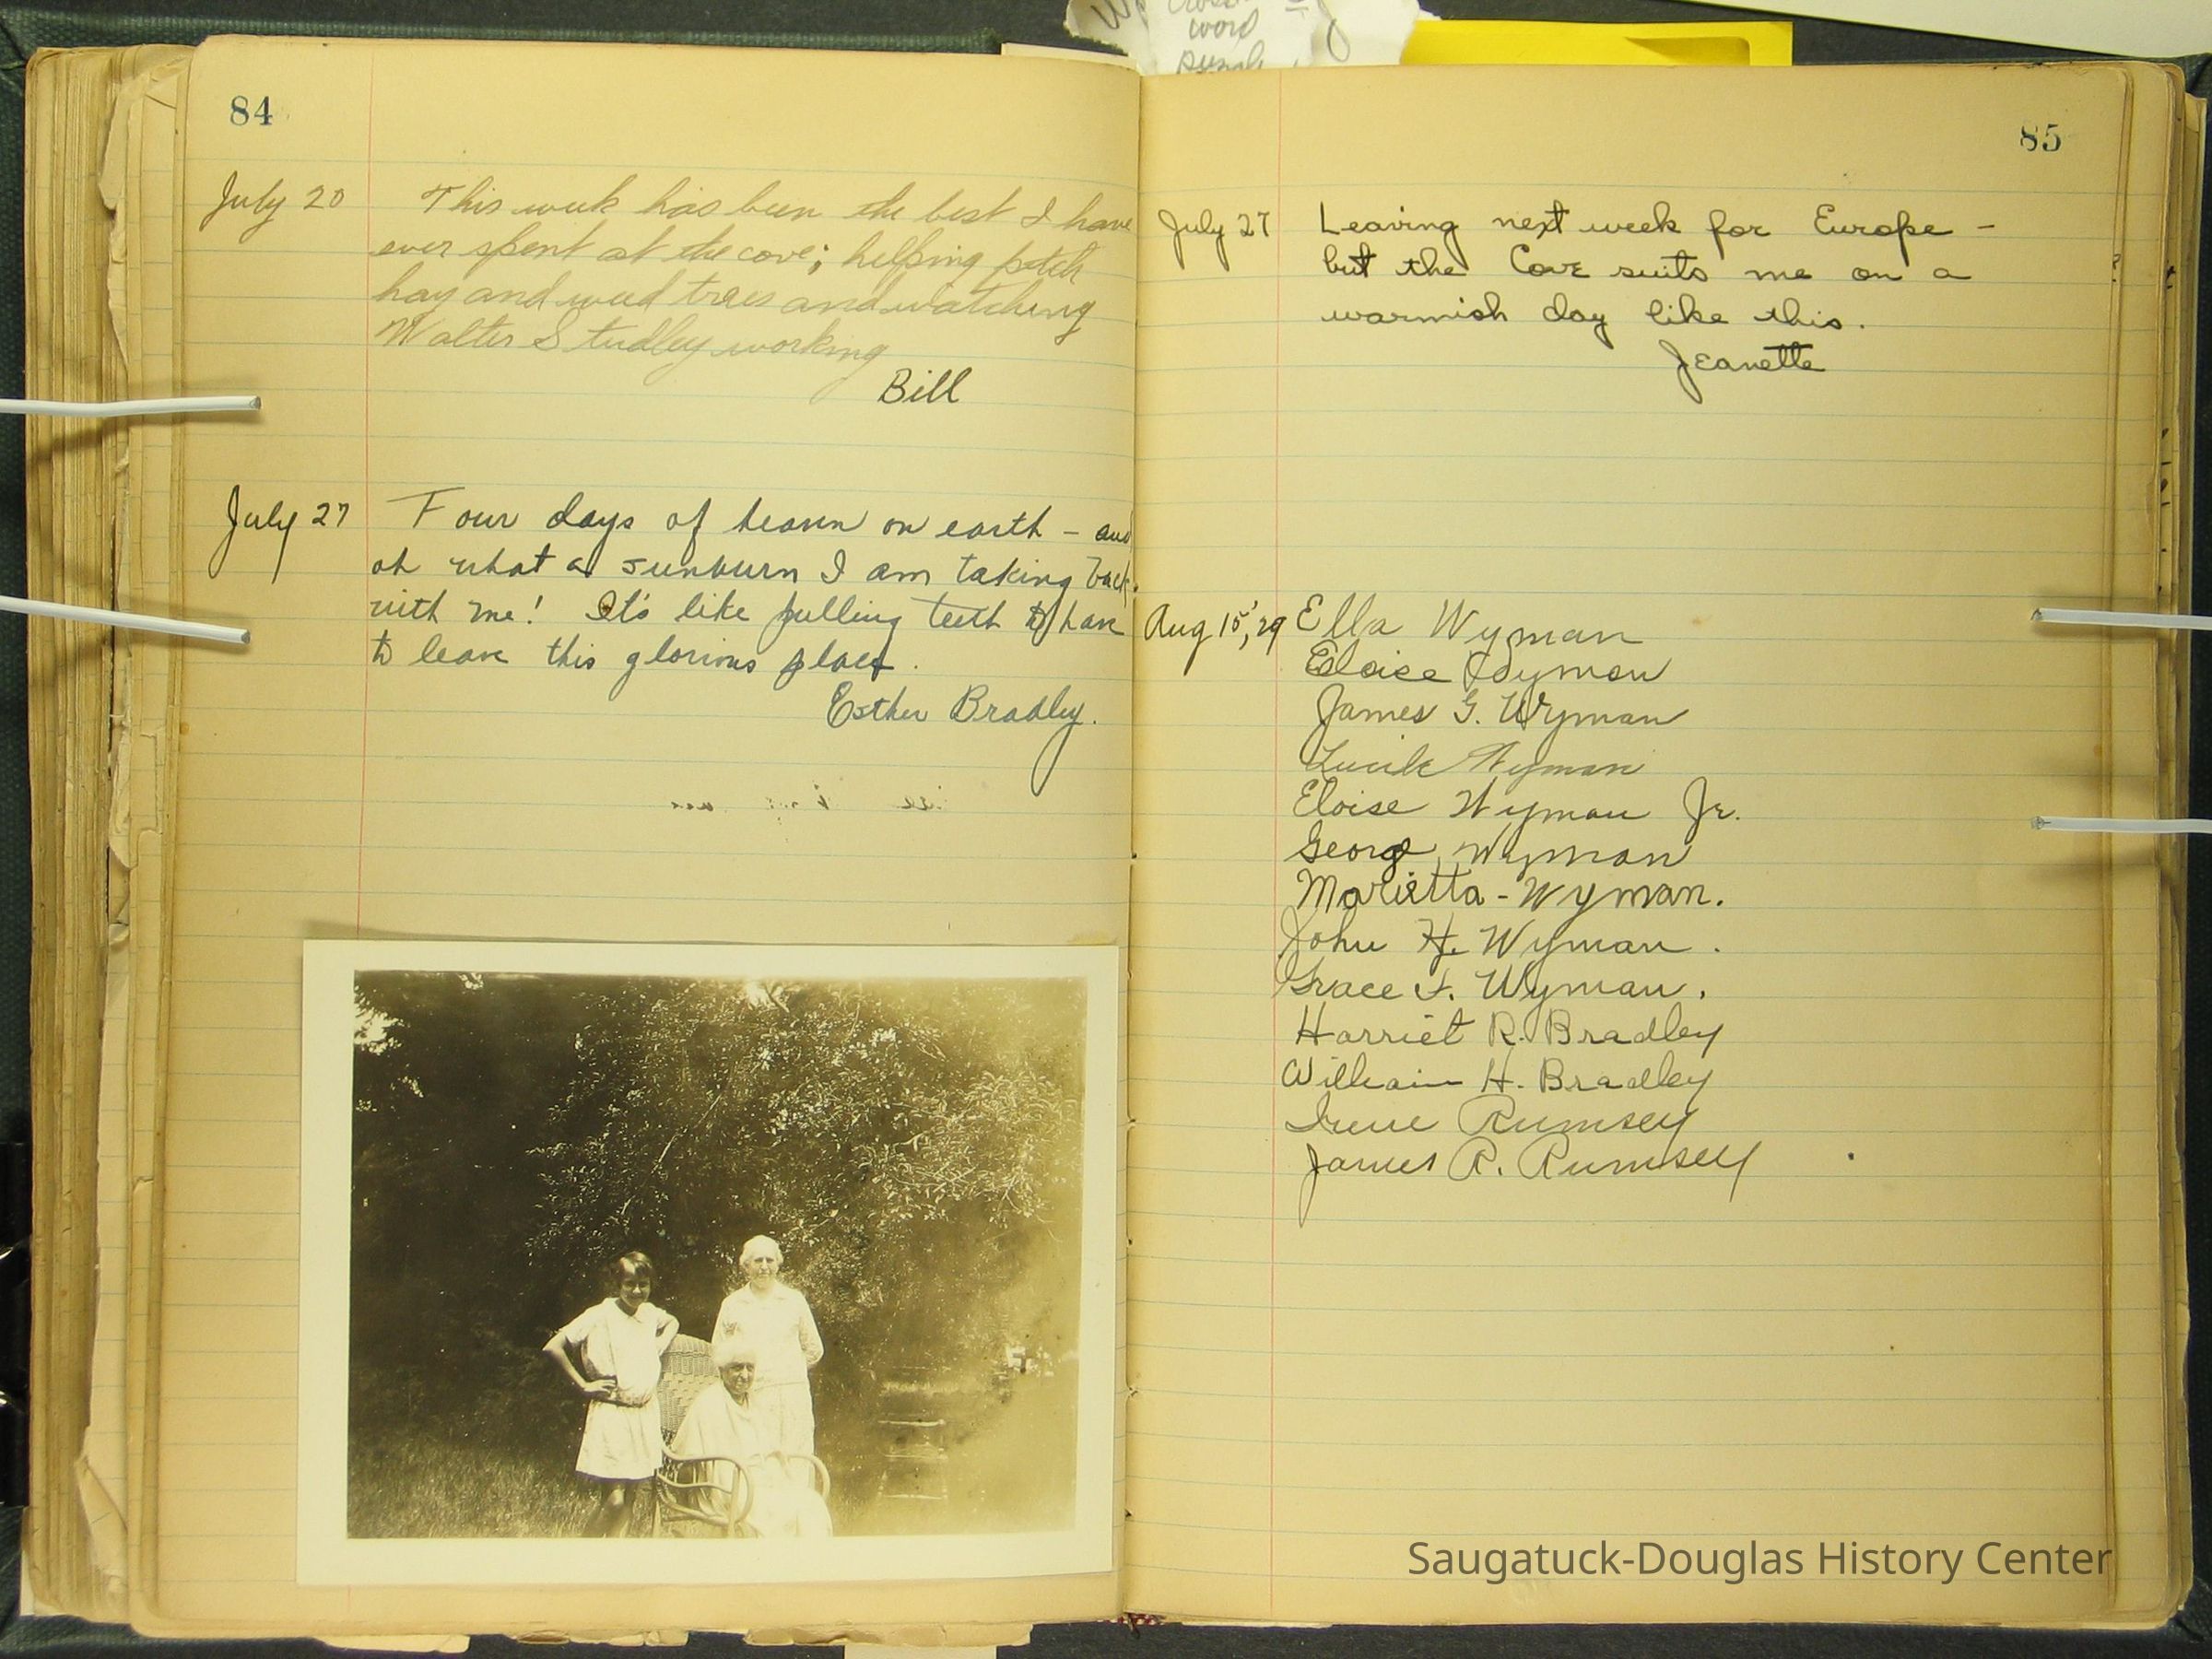 cross
word
84
July 20 This week has been the best I have
ever spent at the cove; helping pitch
hay and weed trees and watching
Walter Studley working
Bill
July 27 Four days of heaven on earth - and
oh what a sunburn I am taking back
with me! It's like pulling teeth to have
to leave this glorious place.
Esther Bradley.
85
July 27 Leaving next week for Europe -
but the Cove suits me on a
warmish day like this.
Jeanette
Aug 15, 29 Ella Wyman
Eloise Wyman
James G. Wyman
Lucile Wyman
Eloise Wyman Jr.
George Wyman
Marietta - Wyman.
John H. Wyman.
Grace F. Wyman.
Harriet R. Bradley
William H. Bradley
Irene Rumsey
James R. Rumsey
Saugatuck-Douglas History Center